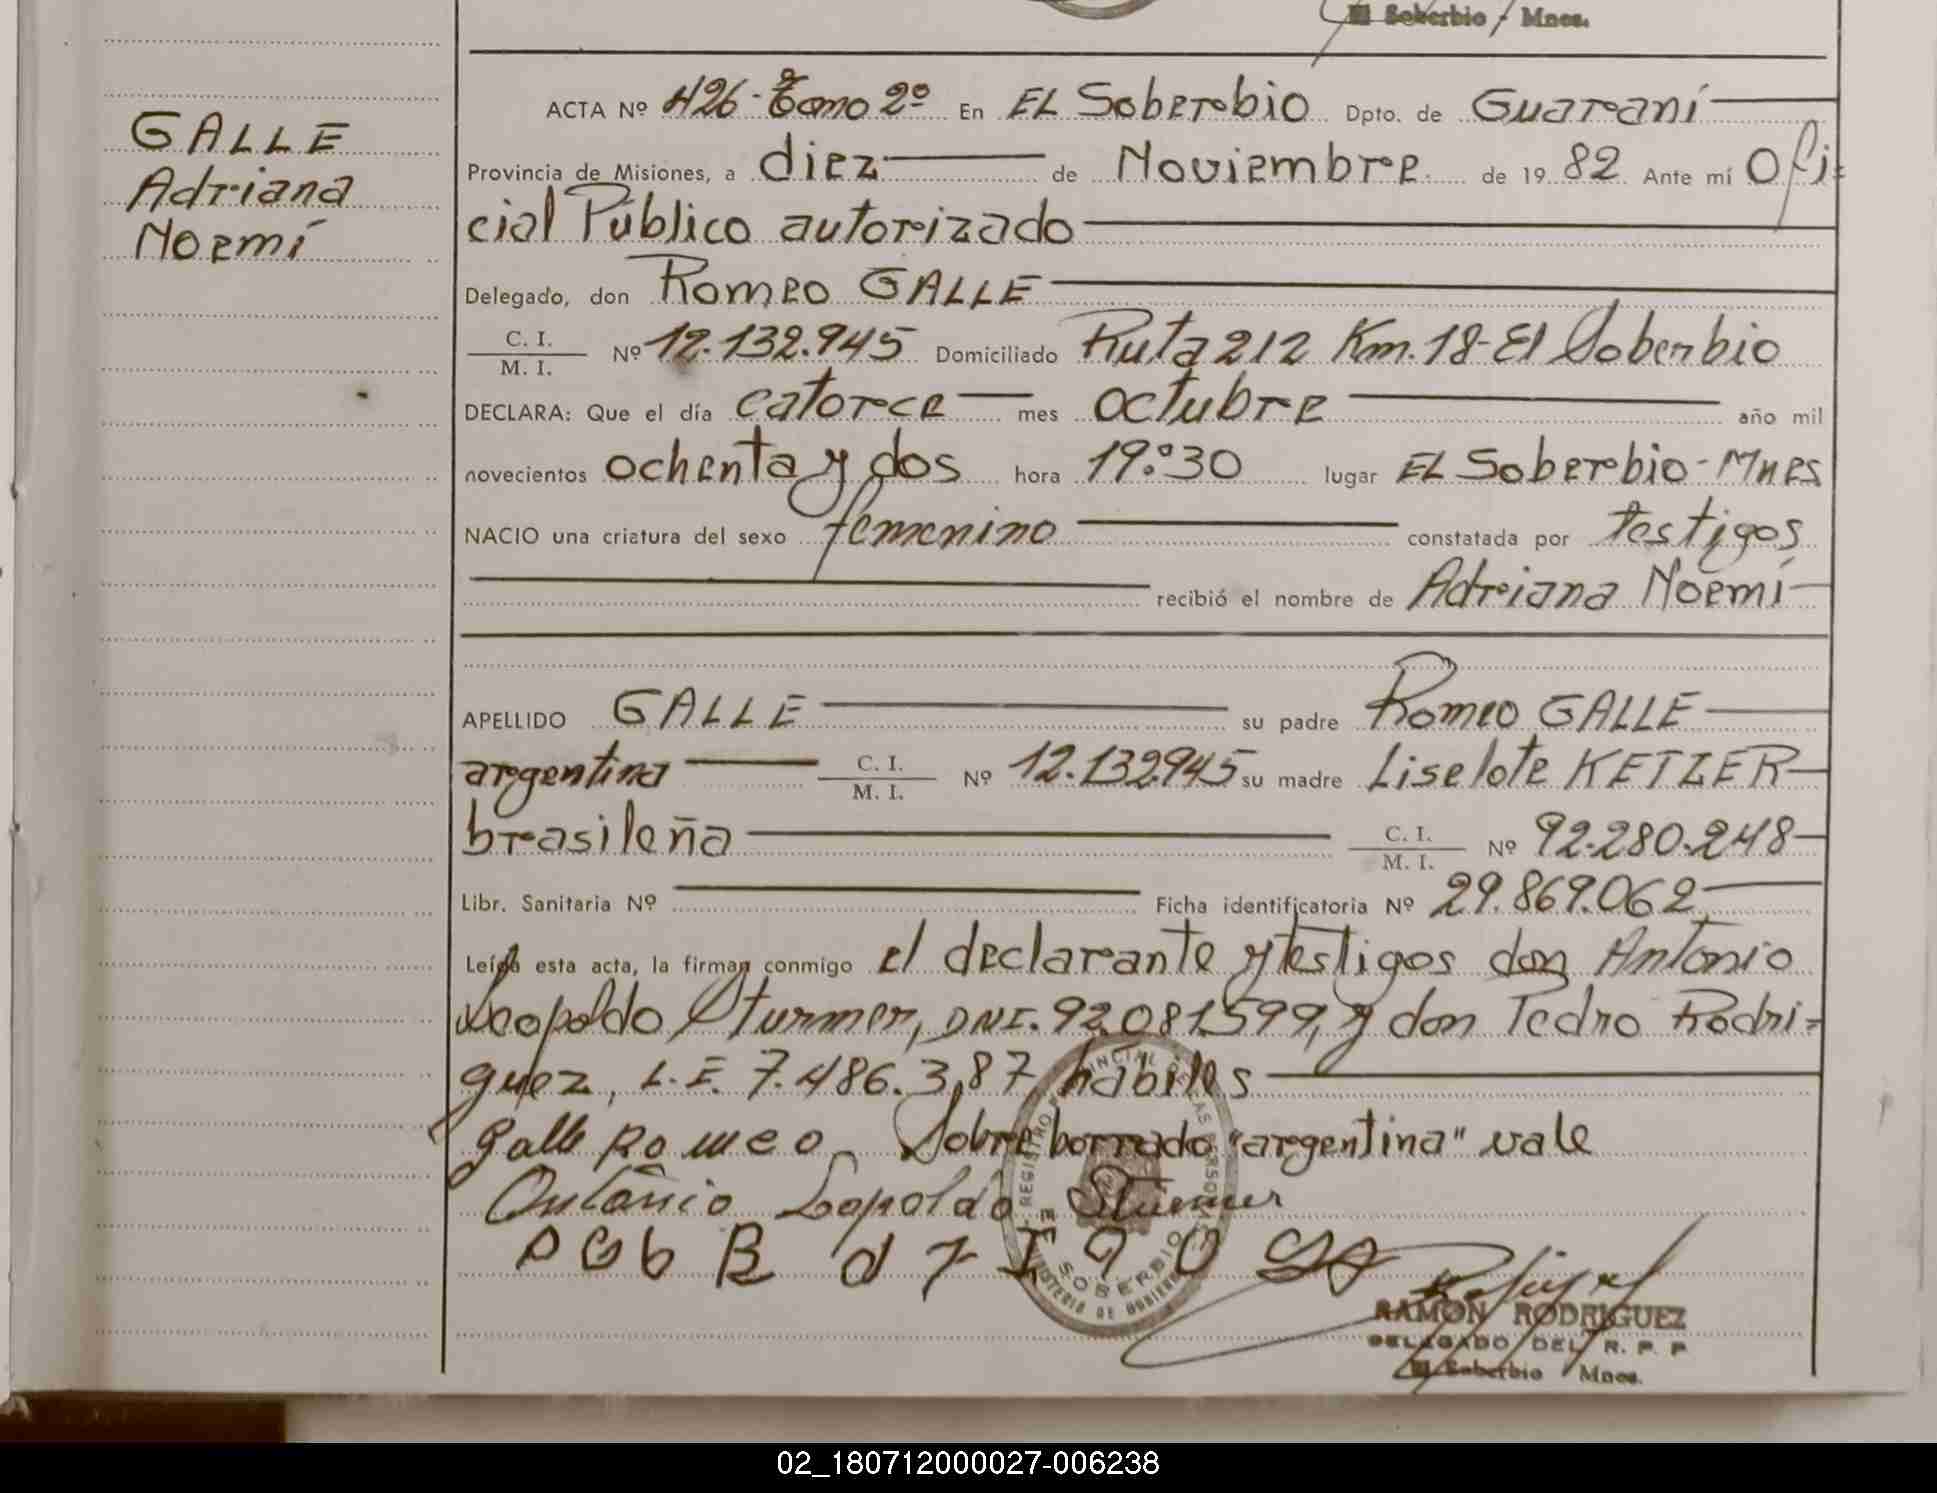 El Soberbio - Mnes.
GALLE
Adriana
Noemí
ACTA Nº 426 - Tomo 2º En EL Soberbio Dpto. de Guaraní
Provincia de Misiones, a diez de Noviembre de 1982 Ante mí Ofi=
cial Público autorizado
Delegado, don Romeo GALLE
C. I. / M. I. Nº 12.132.945 Domiciliado Ruta 212 Km. 18 - El Soberbio
DECLARA: Que el día catorce mes octubre año mil
novecientos ochenta y dos hora 19:30 lugar EL Soberbio - Mnes
NACIO una criatura del sexo femenino constatada por testigos
recibió el nombre de Adriana Noemí
APELLIDO GALLE su padre Romeo GALLE
argentina C. I. / M. I. Nº 12.132.945 su madre Liselote KETZER
brasileña C. I. / M. I. Nº 92.280.248
Libr. Sanitaria Nº Ficha identificatoria Nº 29.869.062
Leída esta acta, la firman conmigo el declarante y testigos don Antonio
Leopoldo Sturmer, DNI. 92.081.599, y don Pedro Rodri=
guez, L.E. 7.486.387 hábiles
Galle Romeo Sobre borrado "argentina" vale
Antônio Leopoldo Stürmer
REGISTRO PROVINCIAL DE LAS PERSONAS
SOBERBIO
MINISTERIO DE GOBIERNO
RAMON RODRIGUEZ
DELEGADO DEL R. P. P
El Soberbio Mnes.
02_180712000027-006238